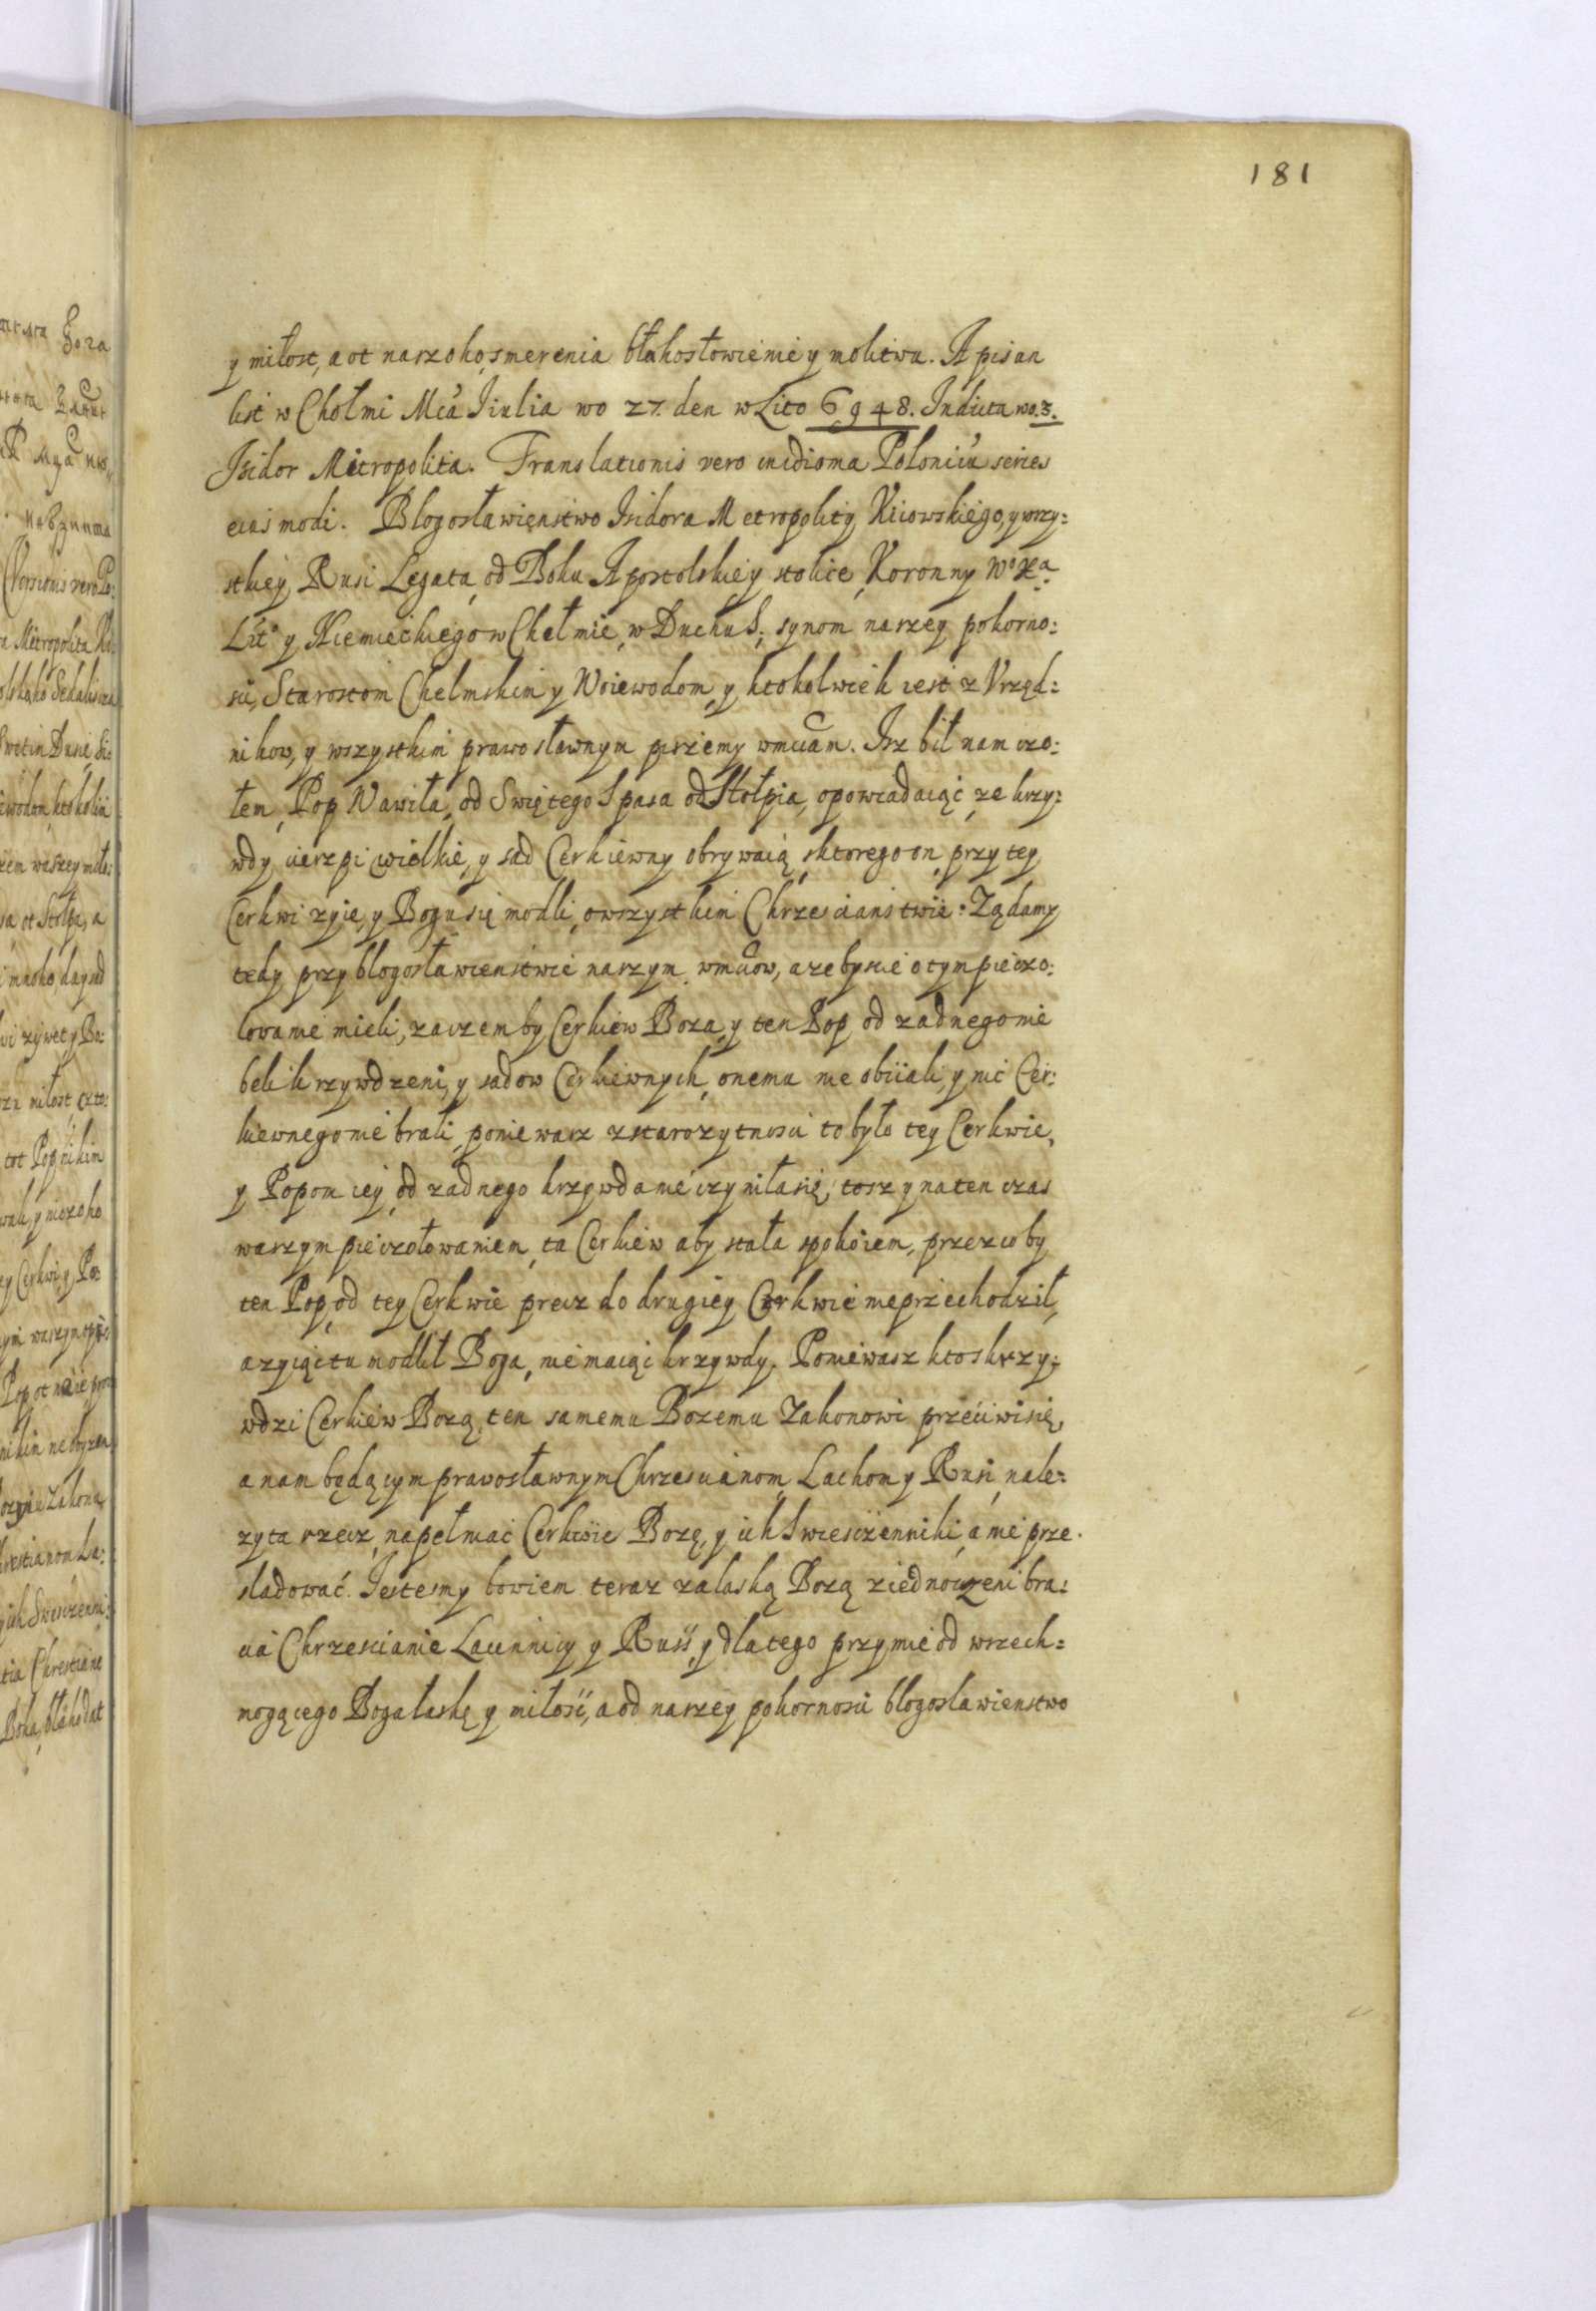 181
y miłost, a ot naszoho smerenia błahosłowienie y molitwu. A pisan
list w Chołmi Mca Jiulia wo 27. den w Lito 6948. Indicta wo. 3.
Isidor Mitropolita. Translationis vero in idioma Polonicũ series
eius modi. Blogosławięnstwo Isidora Metropolity Kiiowskiego, y wszy:
stkiey Rusi Legata, od Boku Apostolskiey stolice, Koronny Wo Xa
Lit° y Niemieckiego w Chełmie, w Duchu S. synom naszey pokorno:
sci, Starostom Chelmskim y Woiewodom, y ktokolwiek iest z Vrzęd:
nikow, y wszystkim prawosławnym piszemy wmciam. Isz bił nam czo:
łem, Pop Wawiła, od Swiętego Spasa od Stołpia, opowiadaiąc, ze krzy:
wdy cierzpi wielkie, y sad Cerkiewny obrywaią, sktorego on przy tey
Cerkwi zyie, y Bogu się modli, o wszystkim Chrzescianstwie: Ządamy
tedy przy blogosławienstwie naszym wmciow, azebyscie o tym pieczo:
lovanie mieli, zaczem by Cerkiew Boza, y ten Pop od zadnego nie
beli krzywdzeni, y sadow Cerkiewnych, onemu nie obiiali, y nic Cer:
kiewnego nie brali, poniewasz z starozytnosci to było tey Cerkwie,
y Popom iey, od zadnego krzywda nie czyniła się, tosz y na ten czas
waszym pieczołowaniem, ta Cerkiew aby stała spokoiem, przez co by
ten Pop, od tey Cerkwie precz do drugiey Cerkwie nie przechodził,
a zyiąc tu modlił Boga, nie maiąc krzywdy. Poniewasz kto skrzy:
wdzi Cerkiew Bozą, ten samemu Bozemu Zakonowi przeciwi się,
a nam będącym prawosławnym Chrzescianom, Lachom y Rusi, nale:
zyta rzecz, napełniać Cerkwie Bozę, y ich Swieszczenniki, a nie prze:
sladować. Jestesmy bowiem teraz za łaską Bozą ziednoczeni bra:
cia Chrzescianie Lacinnicy y Rusi, y dla tego przymie od wszech:
mogącego Boga łaskę y miłosć, a od naszey pokornosci blogoslawienstwo